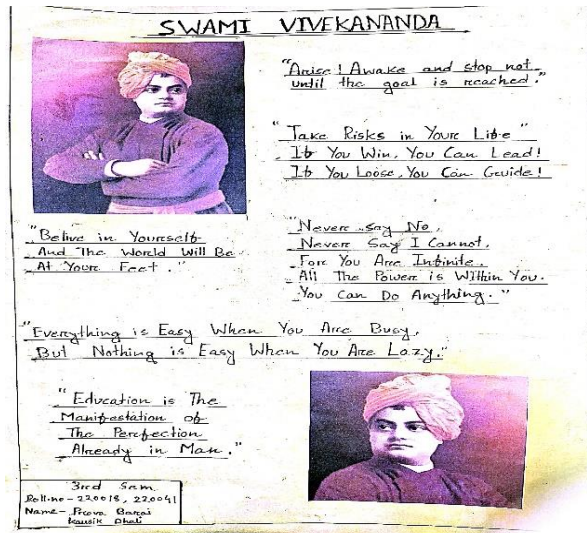 SWAMI VIVEKANANDA
"Arise! Awake and stop not
until the goal is reached."
"Take Risks in Your Life"
If You Win, You Can Lead!
If You Loose, You Can Guide!
"Belive in Yourself
And The World Will Be
At Your Feet."
"Never say No,
Never Say I Cannot,
For You Are Infinite.
All The Power is Within You.
You Can Do Anything."
"Everything is Easy When You Are Busy,
But Nothing is Easy When You Are Lazy."
"Education is The
Manifestation of
The Perfection
Already in Man."
3rd Sem
Roll.no - 220018, 220041
Name - Prova Barai
Kausik Dhali